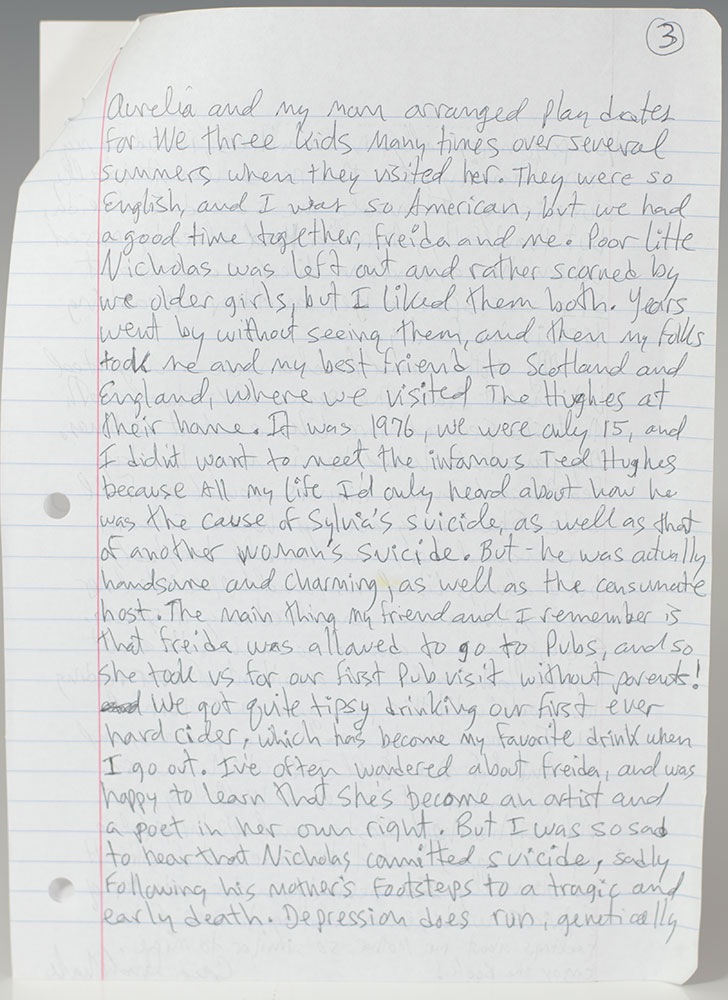 3
Aurelia and my mom arranged play dates
for we three kids many times over several
summers when they visited her. They were so
English, and I was so American, but we had
a good time together, Freida and me. Poor litte
Nicholas was left out and rather scorned by
we older girls, but I liked them both. Years
went by without seeing them, and then my folks
took me and my best friend to Scotland and
England, where we visited The Hughes at
their home. It was 1976, we were only 15, and
I didn't want to meet the infamous Ted Hughes
because all my life I'd only heard about how he
was the cause of Sylvia's suicide, as well as that
of another woman's suicide. But - he was actually
handsome and charming, as well as the consumate
host. The main thing my friend and I remember is
that Freida was allowed to go to Pubs, and so
she took us for our first Pub visit without parents!
We got quite tipsy drinking our first ever
hard cider, which has become my favorite drink when
I go out. I've often wondered about Freida, and was
happy to learn that she's become an artist and
a poet in her own right. But I was so sad
to hear that Nicholas committed suicide, sadly
following his mother's footsteps to a tragic and
early death. Depression does run, genetically